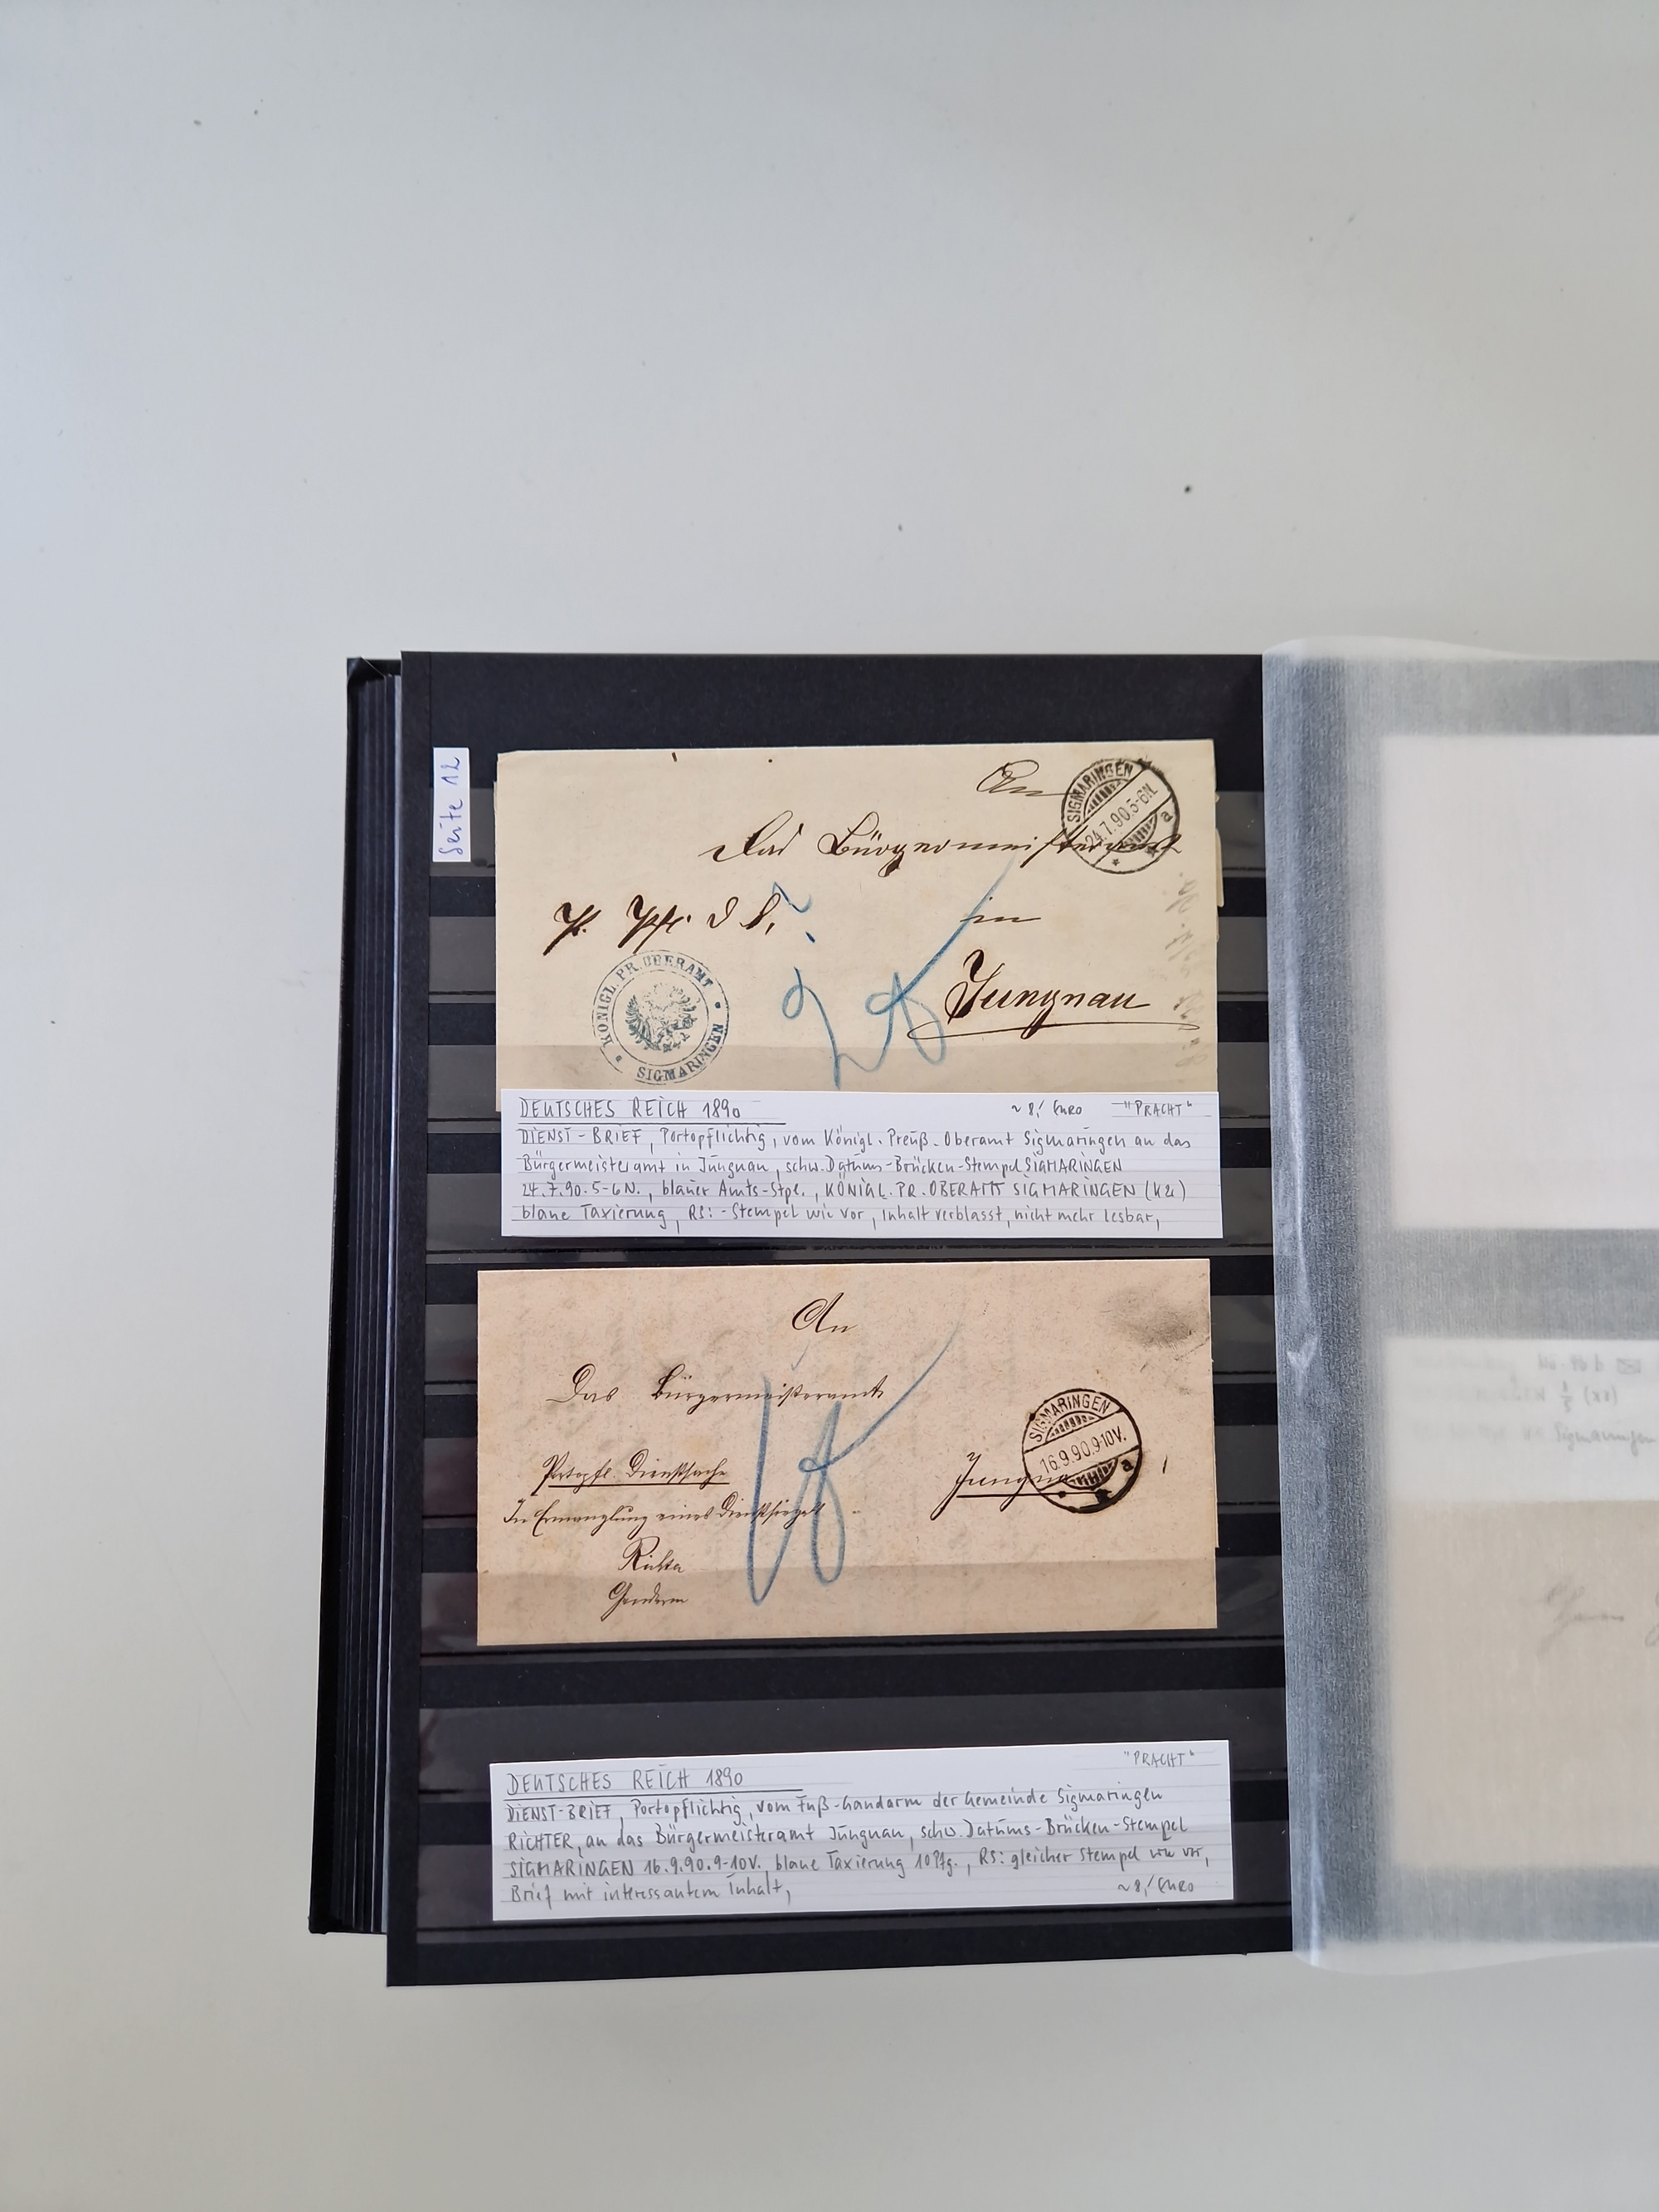 Seite 12
An
SIGMARINGEN
24.7.90.5-6N.
a
Das Bürgermeisteramt
in
Jungnau
KÖNIGL. PR. OBERAMT
SIGMARINGEN
DEUTSCHES REICH 1890 ~ 8,- Euro "PRACHT"
DIENST-BRIEF, Portopflichtig, vom Königl. Preuß. Oberamt Sigmaringen an das
Bürgermeisteramt in Jungnau, schw. Datums-Brücken-Stempel SIGMARINGEN
24.7.90.5-6N., blauer Amts-Stpl., KÖNIGL. PR. OBERAMT SIGMARINGEN (K2)
blaue Taxierung, RS: - Stempel wie vor, Inhalt verblasst, nicht mehr lesbar,
An
Das Bürgermeisteramt
SIGMARINGEN
16.9.90.9-10V.
a
Portopfl. Dienstsache
Jungnau
In Ermanglung eines Dienstsiegels
Richter
Gendarm
"PRACHT"
DEUTSCHES REICH 1890
DIENST-BRIEF, Portopflichtig, vom Fuß-Gandarm der Gemeinde Sigmaringen
RICHTER, an das Bürgermeisteramt Jungnau, schw. Datums-Brücken-Stempel
SIGMARINGEN 16.9.90.9-10V., blaue Taxierung 10 Pfg., RS: gleicher Stempel wie vor,
Brief mit interessantem Inhalt, ~ 8,- Euro
Sigmaringen